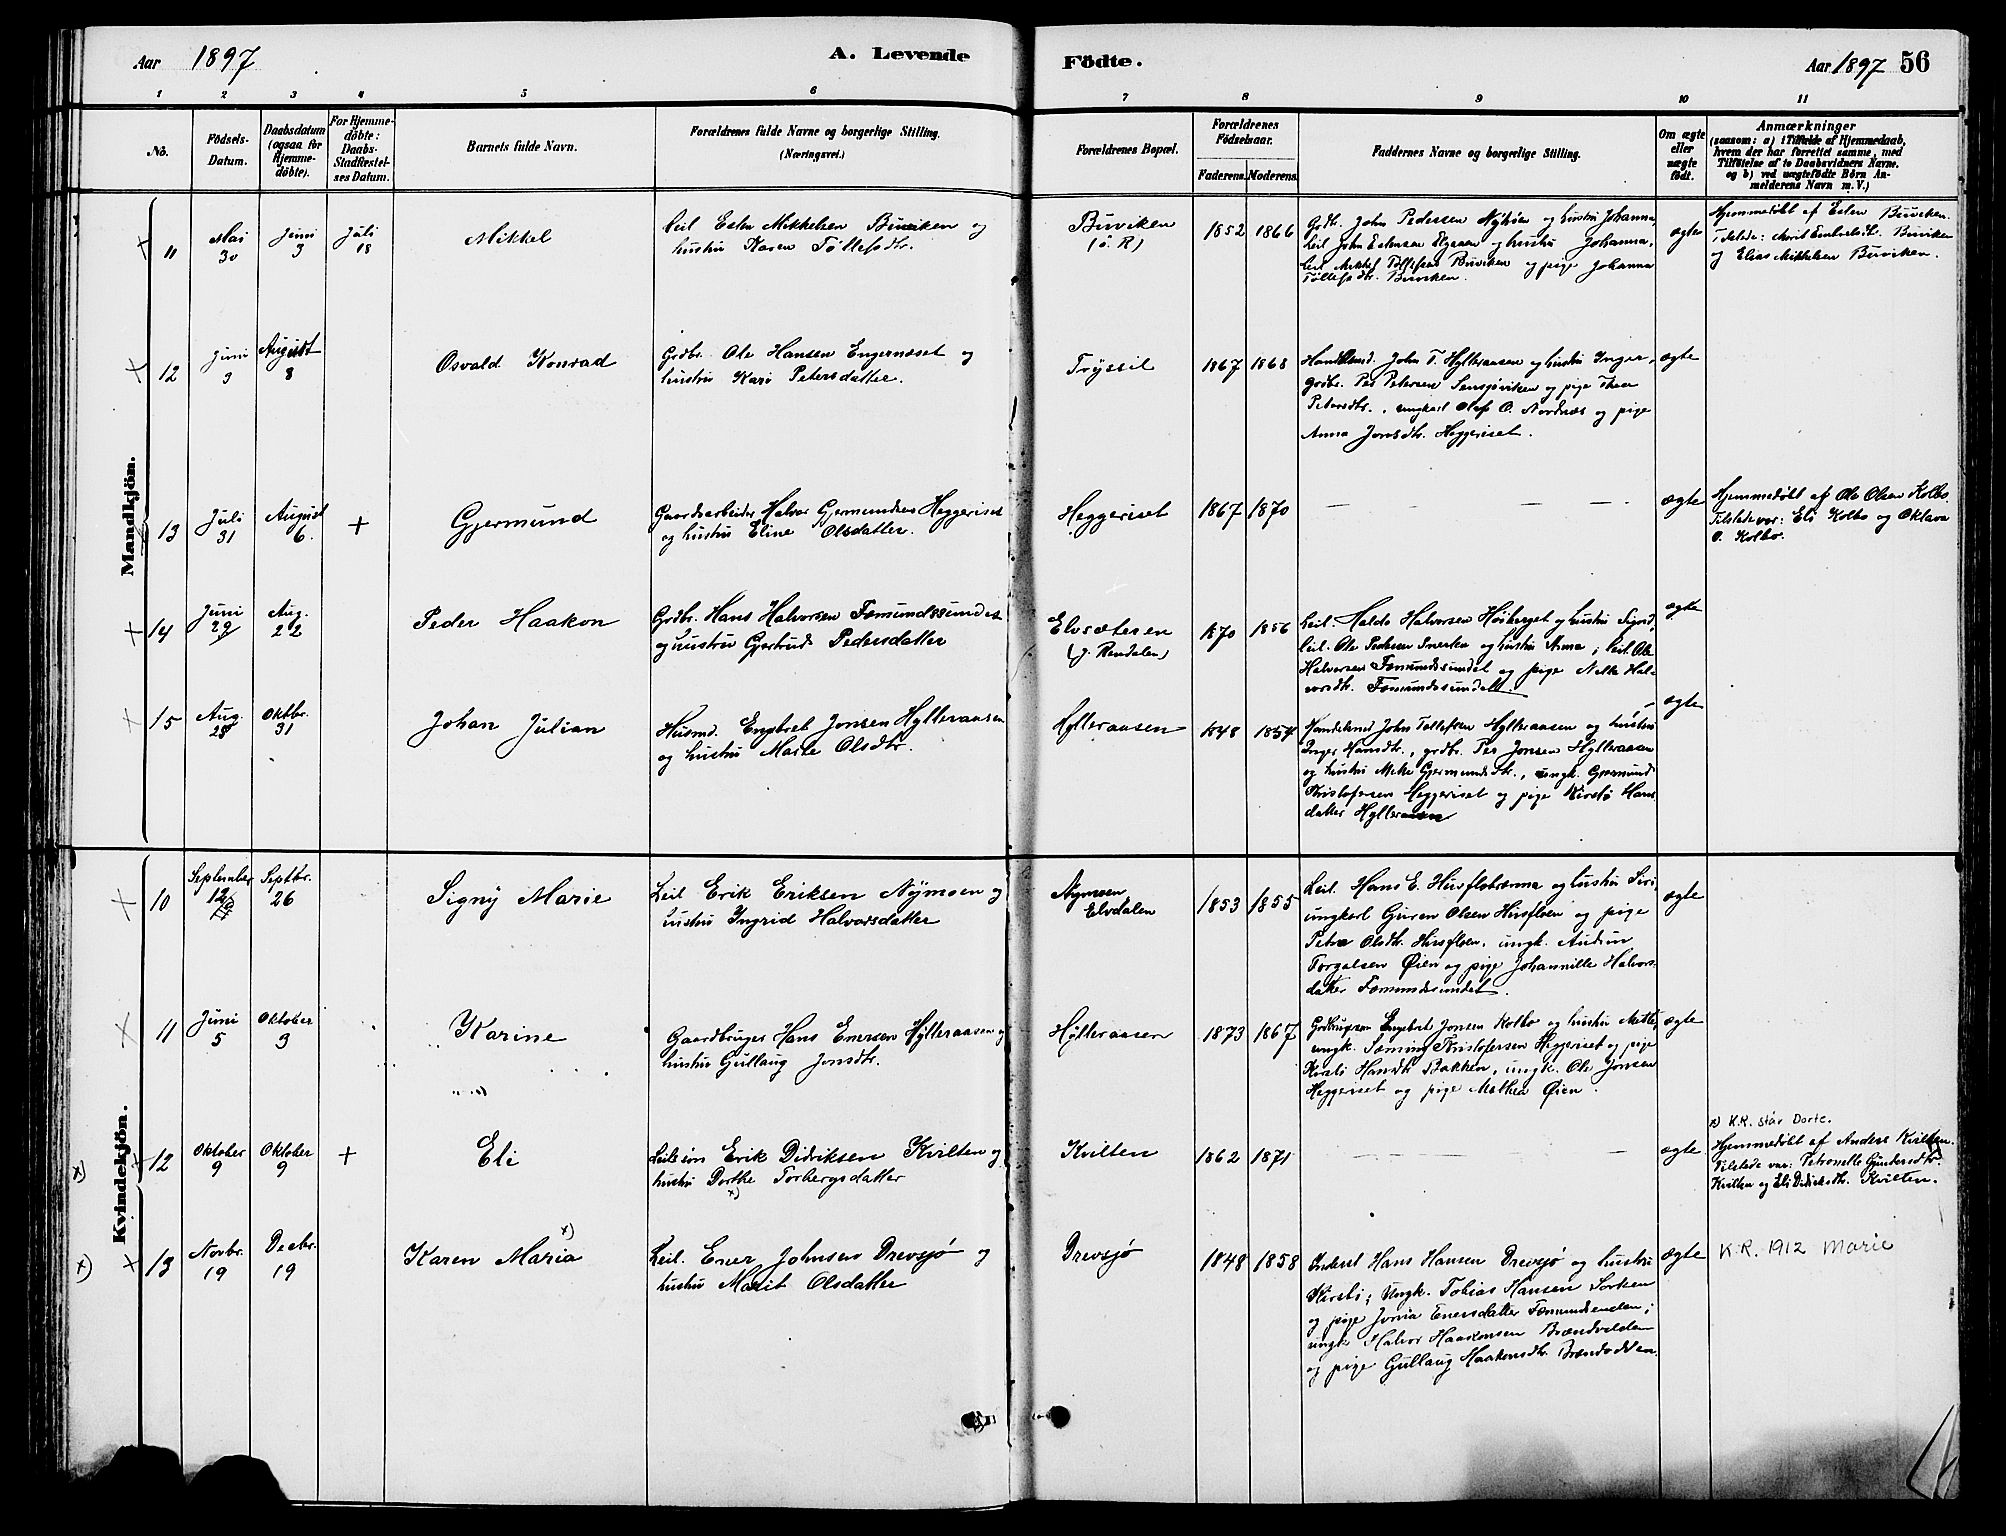 Aar 1897
A. Levende
Födte.
Aar 1897 56
1 2 3 4 5 6 7 8 9 10 11
No.
Födsels-
Datum.
Daabsdatum
(ogsaa for
Hjemme-
döbte).
For Hjemme-
döbte:
Daabs-
Stadfæstel-
ses Datum.
Barnets fulde Navn.
Forældrenes fulde Navne og borgerlige Stilling.
(Næringsvei.)
Forældrenes Bopæl.
Forældrenes
Födselsaar.
Faderens. Moderens.
Faddernes Navne og borgerlige Stilling.
Om ægte
eller
uægte
födt.
Anmærkninger
(saasom: a) i Tilfælde af Hjemmedaab,
hvem der har forrettet samme, med
Tilföielse af to Daabsvidners Navne.
og b) ved uægtefödte Börn An-
melderens Navn m. V.)
Mandkjön.
11
Mai
30
Juni
3
Juli
18
Mikkel
Leil Esten Mikkelsen Buviken og
hustru Karen Tollefsdtr.
Buviken
(ö. R)
1852 1866
Grdb. John Pedersen Nyhöe og hustru Johanna,
Leil John Estensen Elgaaen og hustru Johanna,
Leil Mikkel Tollefsen Buviken og pige Johanna
Tollefsdtr. Buviken.
ægte
Hjemmedöbt af Esten Buviken.
Tilstede: Marit Embretsdtr. Buviken
og Elias Mikkelsen Buviken.
12
Juni
3
August
8
Osvald Konrad
Grdbr. Ole Hansen Engernæset og
hustru Kari Petersdatter.
Tryssil
1867 1868
Handelsmd. John T. Hylleraasen og hustru Inger,
grdbr. Per Petersen Sensjöviken og pige Thea
Petersdtr., ungkarl Olaf O. Nordnæs og pige
Anna Jonsdtr. Heggeriset.
ægte
13
Juli
31
August
6.
+
Gjermund
Gaardsarbeider Halvor Gjermundsen Heggeriset
og hustru Eline Olsdatter.
Heggeriset
1867 1870
ægte
Hjemmedöbt af Ole Olsen Kolbo
Tilstede var: Eli Kolbo og Oktava
O. Kolbo.
14
Juni
29
Aug.
22
Peder Haakon
Grdbr. Hans Halvorsen Fæmundssundet
og hustru Gjertrud Pedersdatter
Elvsæteren
(y. Rendalen)
1870 1856
Leil. Haldo Halvorsen Höiberget og hustru Sigrid,
Leil. Ole Pedersen og hustru Anna; Leil. Ole
Halvorsen Fæmundssundet og pige Nelle Hal-
vorsdtr. Fæmundssundet.
ægte
15
Aug.
28
Oktbr.
31
Johan Julian
Husmd. Engebret Jonsen Hylleraasen
og hustru Marte Olsdtr.
Hylleraasen
1848 1854
Handelsmd John Tollefsen Hylleraasen og hustru
Inger Hansdtr., grdbr. Per Jonsen Hylleraasen
og hustru Mette Gjermundsdtr., ungk. Gjermund
Kristofersen Heggeriset og pige Kirsti Hans-
datter Hylleraasen
ægte
Kvindekjön.
10
September
12
Septbr.
26
Signy Marie
Leil Erik Eriksen Nymoen og
hustru Ingrid Halvorsdatter
Nymoen
Elvdalen
1853 1855
Leil. Hans E. Husflobrænna og hustru Siri,
ungkarl Guren Olsen Husfloen og pige
Petra Olsdtr. Husfloen, ungk. Audun
Torgalsen Øien og pige Johannille Halvors-
datter Fæmundssundet.
ægte
11
Juni
5
Oktober
3
Karine
Gaardbruger Hans Enersen Hylleraasen og
hustru Gullaug Jonsdtr.
Hylleraasen
1873 1867
Engebret Jonsen Kolbo og hustru Mette,
ungk. Sæming Kristofersen Heggeriset og pige
Kirsti Hansdtr Bakken, ungk. Ole Jonsen
Heggeriset og pige Mathea Øien.
ægte
x)
12
Oktober
9
Oktober
9
+
Eli
Leil Erik Didriksen Kvilten og
hustru Dorthe Torbergsdatter
x)
Kvilten
1862 1871
ægte
x) K.R. står Dorte.
Hjemmedöbt af Anders Kvilten.
Tilstede var: Petronelle Gundersdtr.
Kvilten og Eli Didriksdtr. Kvilten.
x)
13
Novbr.
19
Decbr.
19
Karen Maria x)
Leil. Ener Johnsen Drevsjø og
hustru Marit Olsdatter
Drevsjø
1848 1858
Inderst Hans Hansen Drevsjø og hustru
Kirsti; Ungk. Tobias Hansen Sorken
og pige Jovia Enersdatter Fæmundsenden;
ungk Halvor Haakonsen Brændvolden
og pige Gullaug Haakensdtr. Brændvolden.
ægte
K.R. 1912 Marie